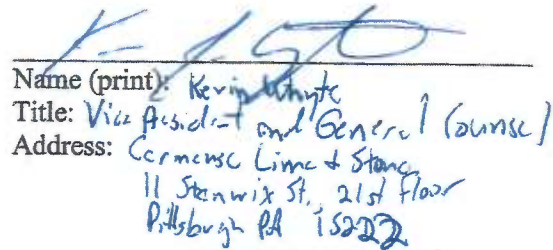 Name (print): Kevin Whyte
Title: Vice President and General Counsel
Address: Carmeuse Lime & Stone
11 Stanwix St., 21st Floor
Pittsburgh PA 15222